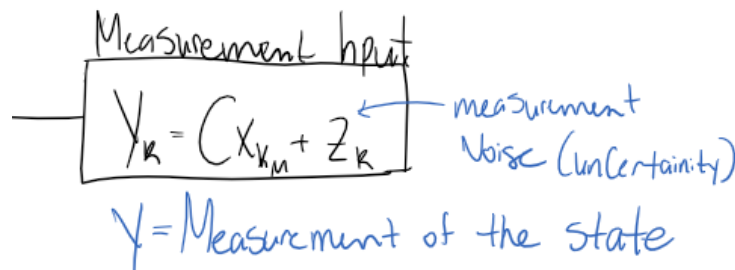 Measurement Input
Y_k = C x_{k_M} + Z_k
measurement
Noise (unCertainity)
Y = Measurement of the state